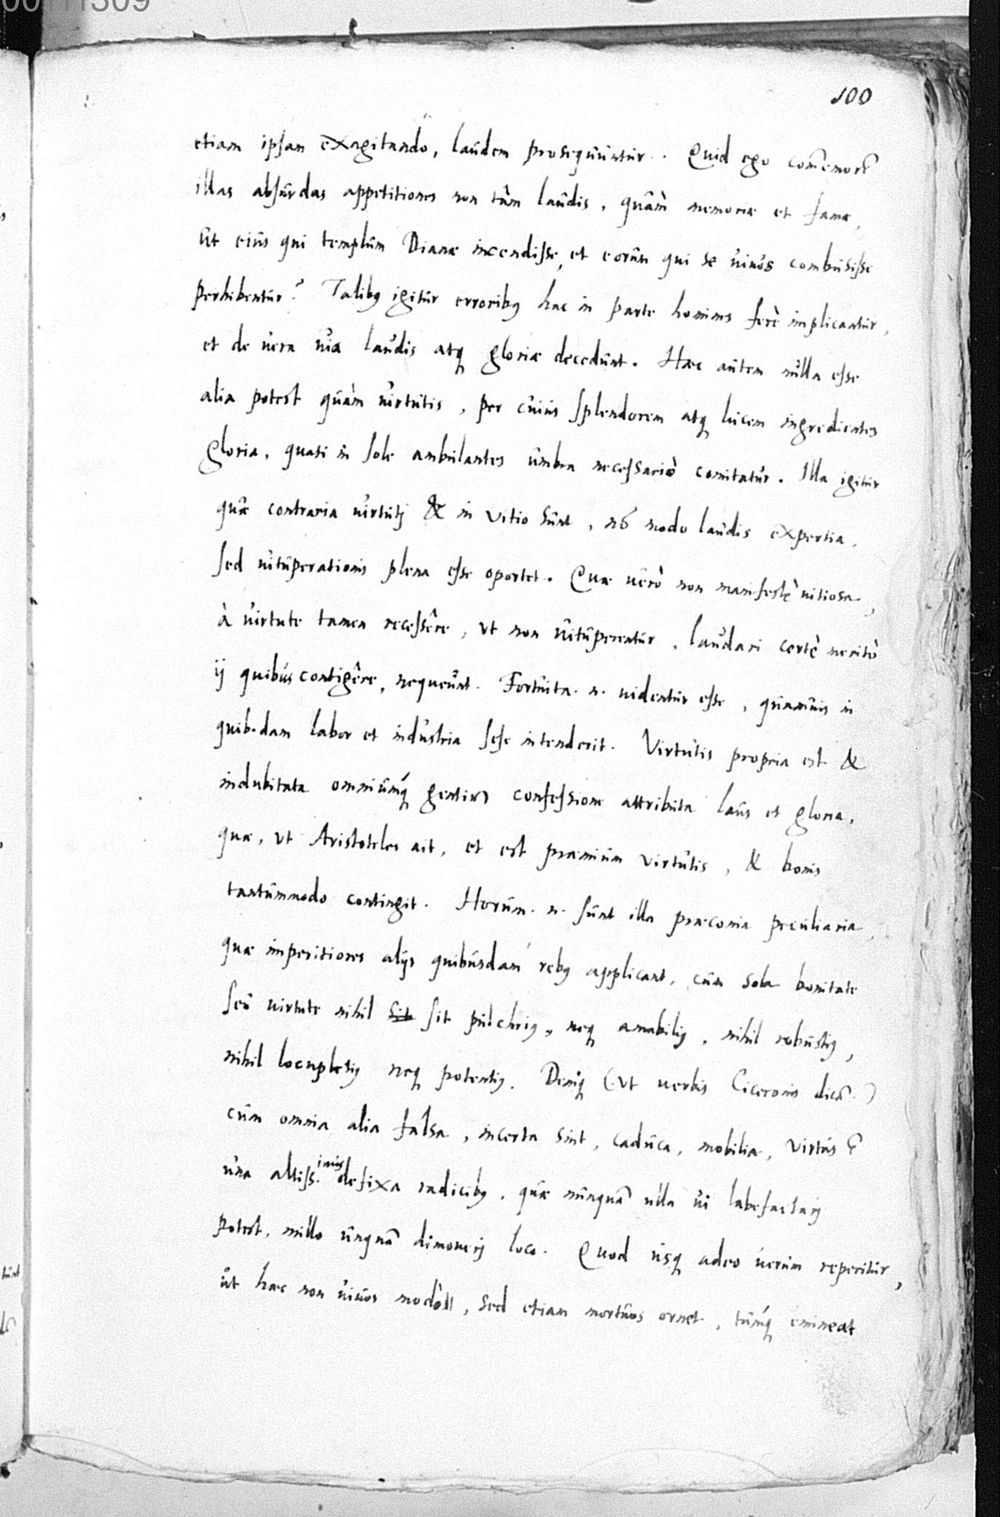 00011309
100
etiam ipsam exagitando, laudem prosequuntur. Quid ego com̃emorẽ
illas absurdas appetitiones non tàm laudis, quàm memoriæ et famæ,
ut eius qui templum Dianæ incendisse, et eorum qui se vivos combusisse
perhibentur? Talibq igitur erroribq hac in parte homines ferè implicantur,
et de vera via laudis atq gloriæ decedunt. Hæc autem nulla esse
alia potest quàm virtutis, per cuius splendorem atq lucem ingredientes
gloria, quasi in sole ambulantes umbra necessariò comitatur. Illa igitur
quæ contraria virtutj & in vitio sunt, nõ modo laudis expertia,
sed vituperationis plena esse oportet. Quæ verò non manifestè vitiosa,
à virtute tamen recessêre, ut non vituperentur, laudari certè meritò
ij quibus contigêre, nequeunt. Fortuita .n. videntur esse, quamvis in
quib.dam labor et industria sese intenderit. Virtutis propria est &
indubitata omniumq́ gentium confessione attributa laus et gloria,
quæ, ut Aristoteles ait, et est præmium virtutis, & bonis
tantummodo contingit. Horum .n. sunt illa præconia peculiaria,
quæ imperitiores alijs quibusdam rebq applicant, cum sola bonitate
seu virtute nihil sit sit pulchriq, neq amabiliq, nihil robustiq,
nihil locupletiq neq potentiq. Deniq (ut verbis Ciceronis dicã)
cum omnia alia falsa, incerta sint, caduca, mobilia, virtus ẽ
una altiss.imis defixa radicibq, quæ nunquã ulla vi labefactarj
potest, nullo unquã dimoverj loco. Quod usq adeo verum reperitur,
ut hæc non vivos modò, sed etiam mortuos ornet, tumq́ emineat